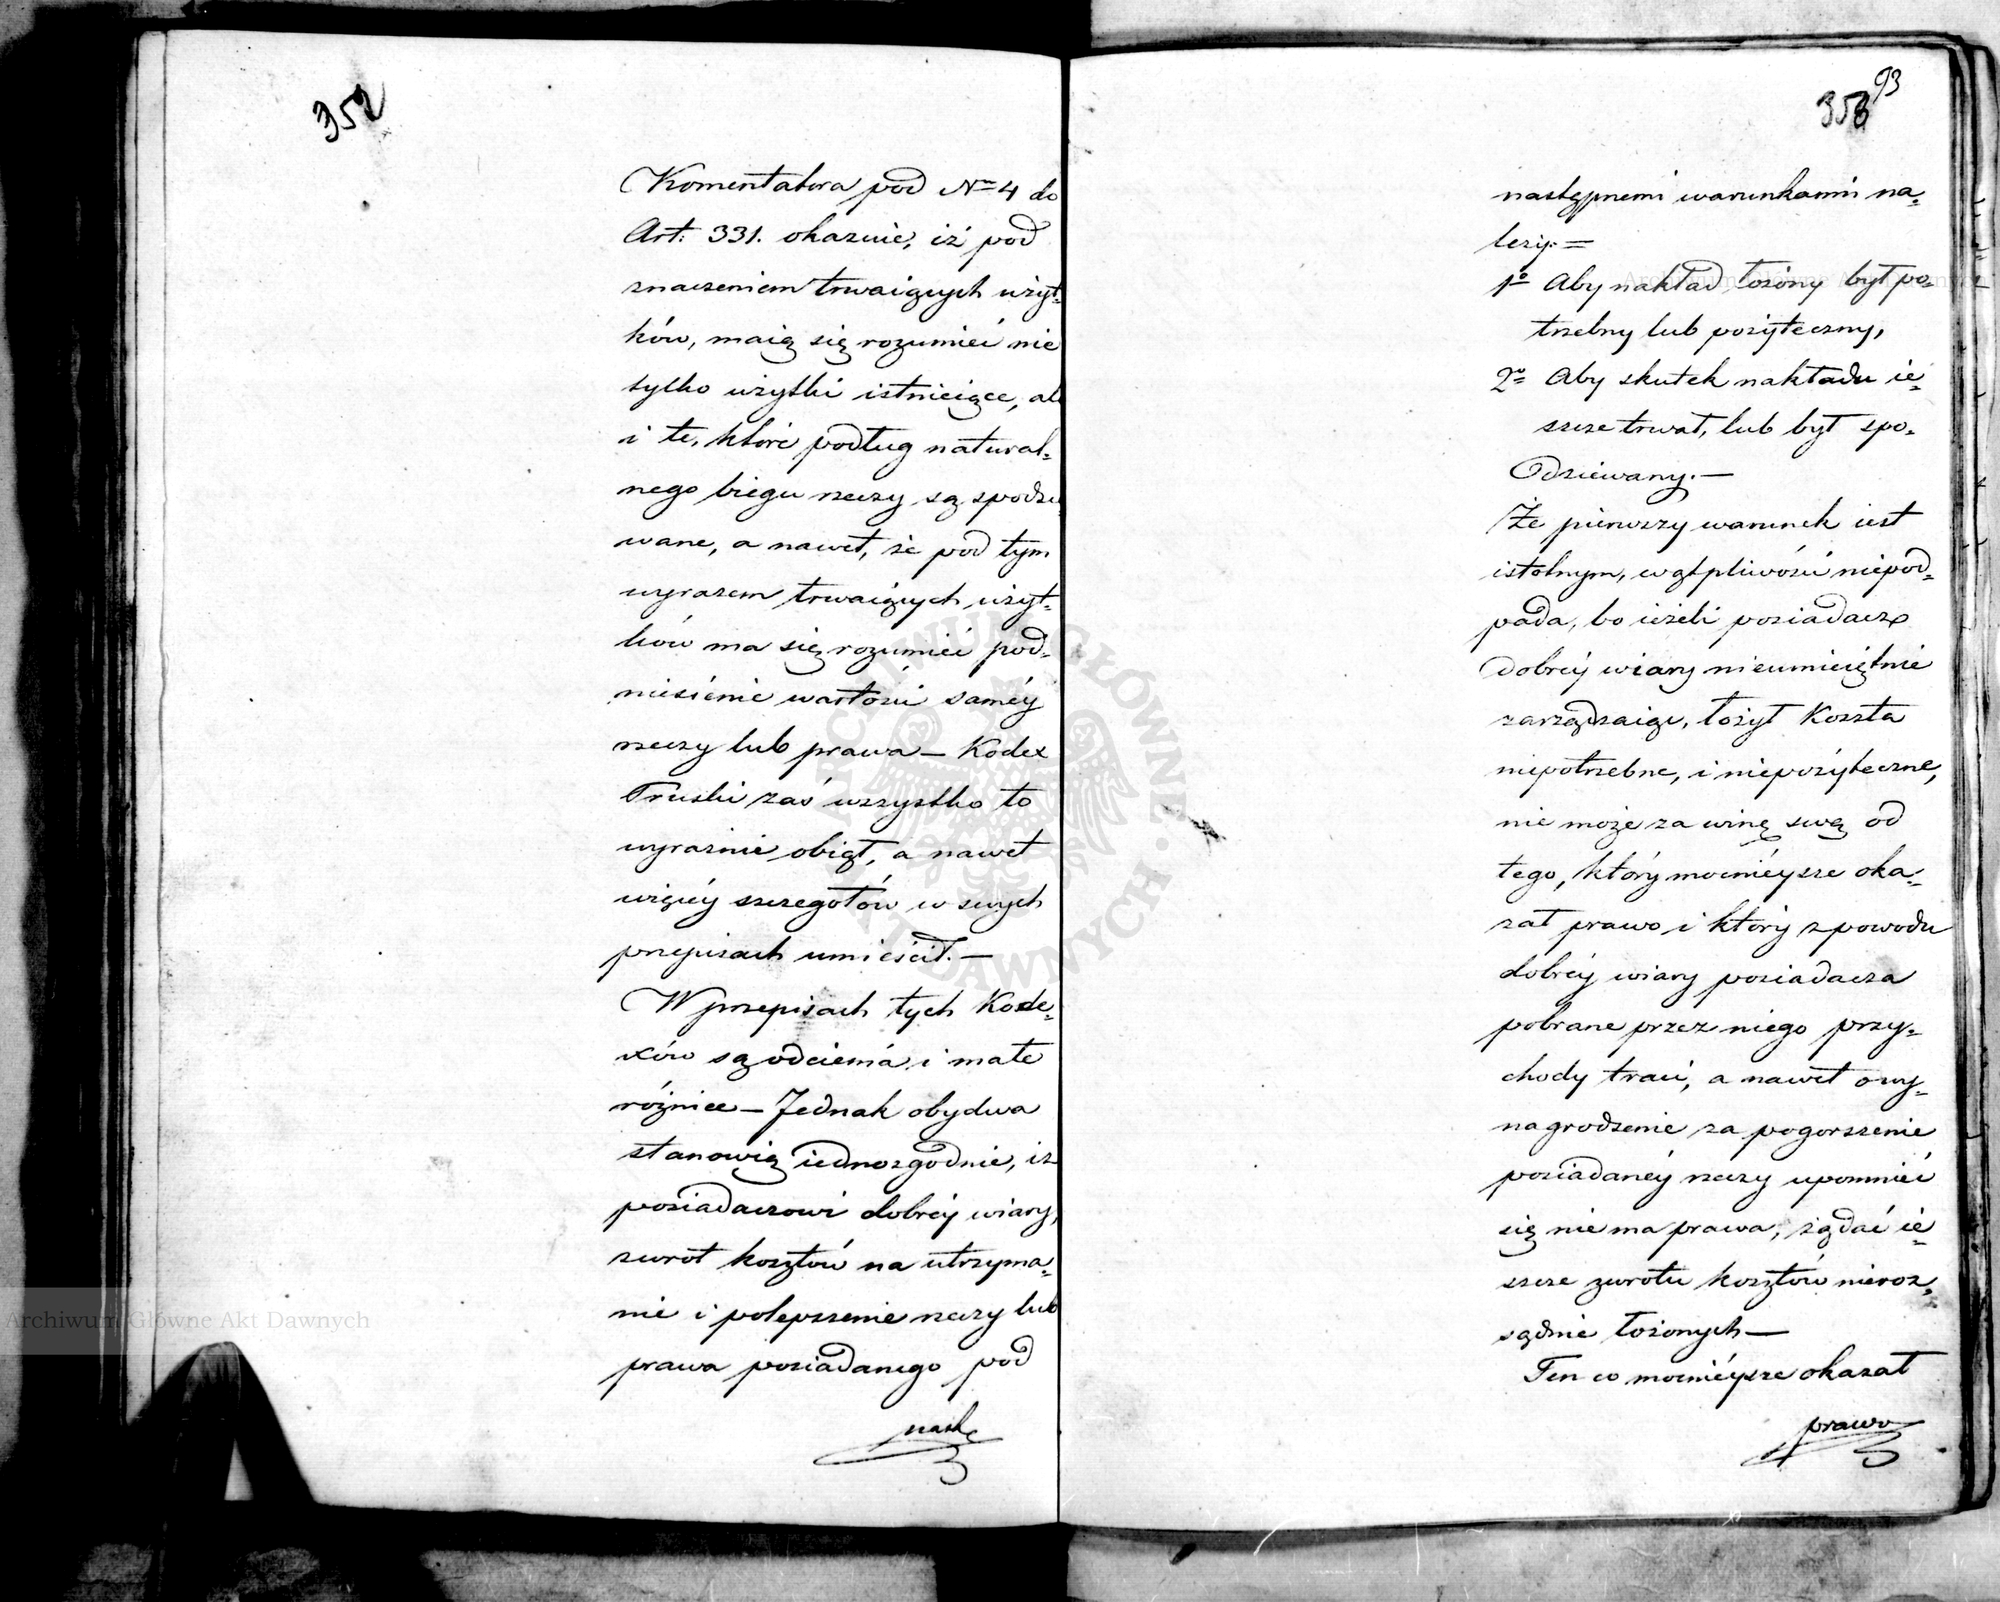 352
Komentatora pod Nro 4 do
Art: 331. okazuie, iż pod
znaczeniem trwaiących użyt-
ków, maią się rozumieć nie
tylko użytki istnieiące, ale
i te, które podług natural-
nego biegu rzeczy są spodzie
wane, a nawet, że pod tym
wyrazem trwaiących użyt-
ków ma się rozumieć pod-
niesienie wartości saméy
rzeczy lub prawa — Kodex
Pruski zaś wszystko to
wyraźnie obiął, a nawet
więcéy szczegółów w swych
przepisach umieścił. —
W przepisach tych Kode-
xów są odcienia i małe
różnice — Jednak obydwa
stanowią iednozgodnie, iż
posiadaczowi dobréy wiary,
zwrot kosztów na utrzyma-
nie i polepszenie rzeczy lub
prawa posiadanego pod
nastę
93
353
następnemi warunkami na-
leży. =
1o Aby nakład łożony był po-
trzebny lub pożyteczny,
2o Aby skutek nakładu ie-
szcze trwał, lub był spo-
dziewany. —
Że pierwszy warunek iest
istotnym, wątpliwości niepod-
pada, bo ieżeli posiadacz
dobréy wiary nieumieiętnie
zarządzaiąc, łożył Koszta
niepotrzebne, i niepożyteczne,
nie może za winę swą od
tego, który mocnieysze oka-
zał prawo i który z powodu
dobréy wiary posiadacza
pobrane przez niego przy-
chody traci, a nawet o wy-
nagrodzenie za pogorszenie
posiadanéy rzeczy upomnieć
się nie ma prawa, żądać ie-
szcze zwrotu kosztów nieroz-
sądnie łożonych —
Ten co mocnieysze okazał
prawo
Archiwum Główne Akt Dawnych